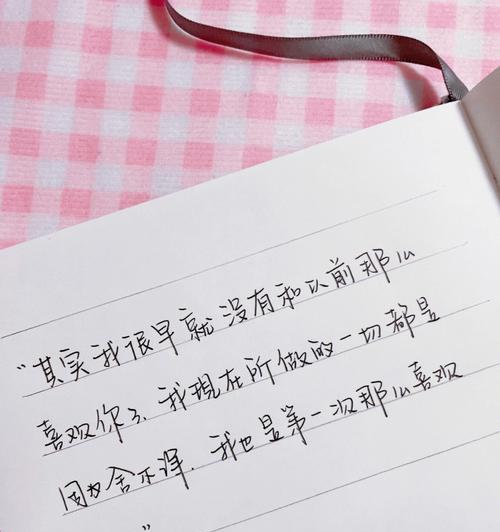 “其实我很早就没有和以前那么
喜欢你了、我現在所做的一切都是
因为舍不得、我也是第一次那么喜欢
”